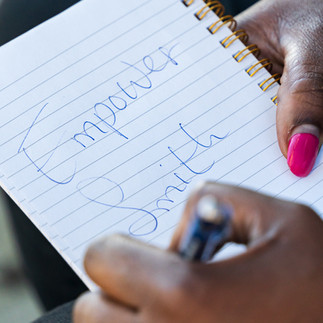 Empower
Smith